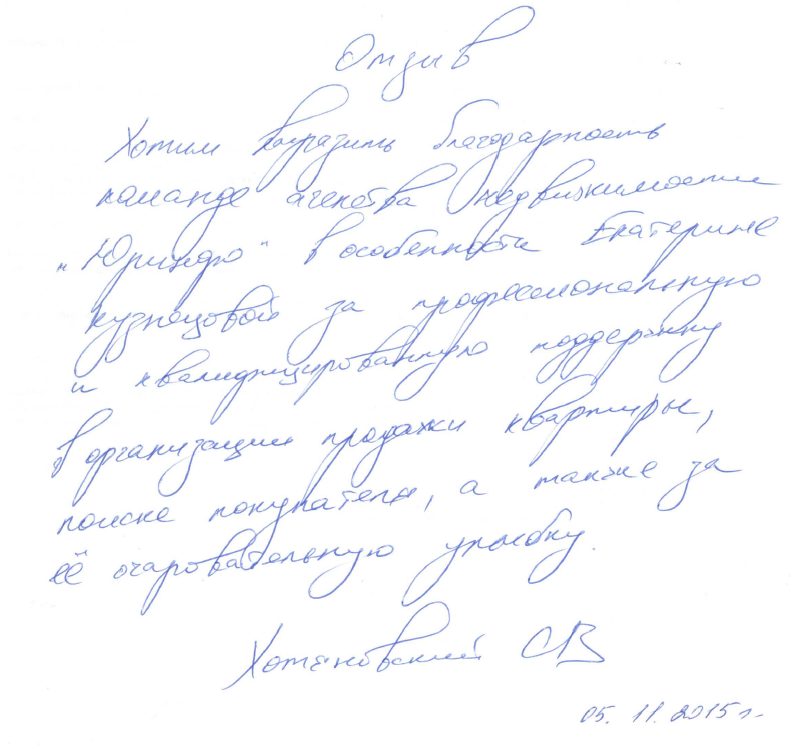 Отзыв
Хотим выразить благодарность
команде агенства недвижимости
"Юриндю" в особенности Екатерине
Кузнецовой за профессиональную
и квалифицированную поддержку
в организации продажи квартиры,
поиске покупателя, а также за
её очаровательную улыбку.
Хотяновский СВ
05.11.2015г.